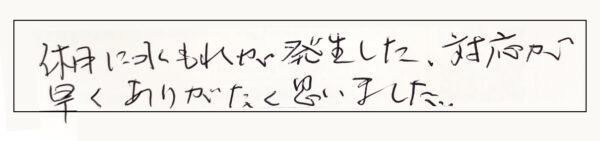 休日に水もれが発生した、対応が
早くありがたく思いました。